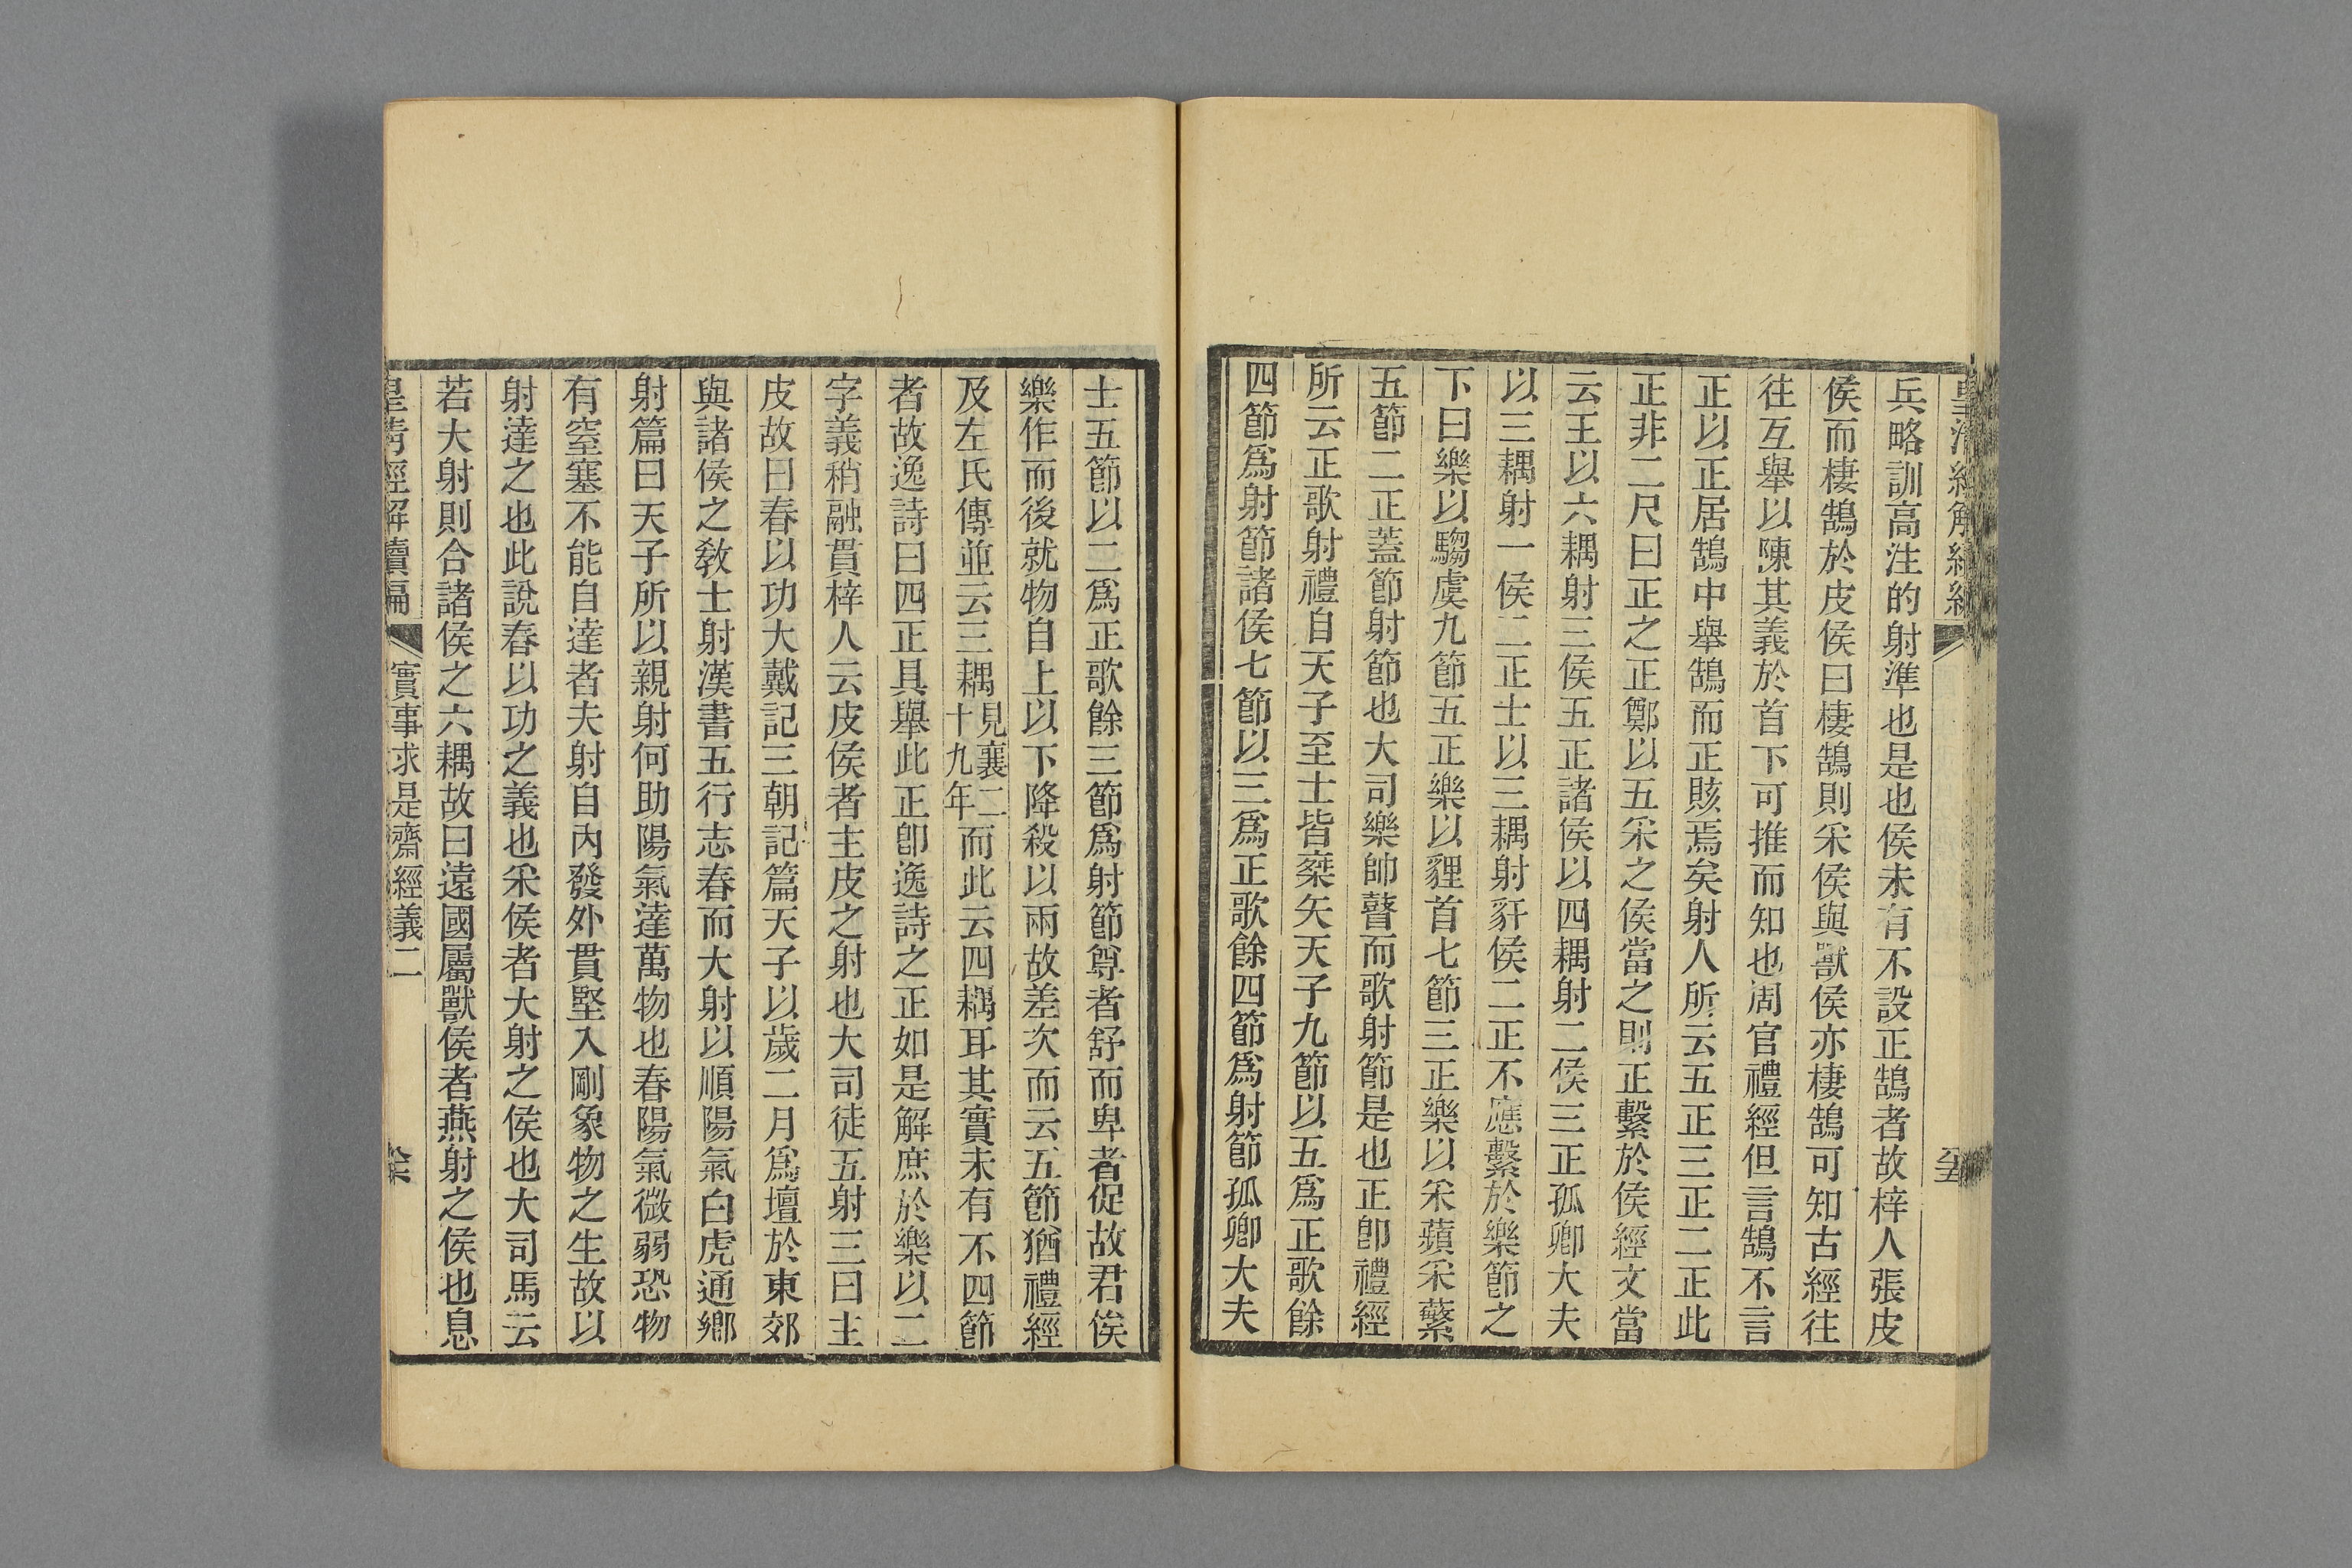 兵略訓高注的射準也是也侯未有不設正鵠者故梓人張皮
侯而棲鵠於皮侯曰棲鵠則采侯與獸侯亦棲鵠可知古經往
往互舉以陳其義於首下可推而知也周官禮經但言鵠不言
正以正居鵠中舉鵠而正賅焉矣射人所云五正三正二正此
正非二尺曰正之正鄭以五采之侯當之則正繫於侯經文當
云王以六耦射三侯五正諸侯以四耦射二侯三正孤卿大夫
以三耦射一侯二正士以三耦射豻侯二正不應繫於樂節之
下曰樂以騶虞九節五正樂以貍首七節三正樂以采蘋采蘩
五節二正蓋節射節也大司樂帥瞽而歌射節是也正卽禮經
所云正歌射禮自天子至士皆椉矢天子九節以五爲正歌餘
四節爲射節諸侯七節以三爲正歌餘四節爲射節孤卿大夫
士五節以二爲正歌餘三節爲射節尊者舒而卑者促故君俟
樂作而後就物自上以下降殺以兩故差次而云五節猶禮經
及左氏傳並云三耦見襄二十九年而此云四耦耳其實未有不四節
者故逸詩曰四正具舉此正卽逸詩之正如是解庶於樂以二
字義稍融貫梓人云皮侯者主皮之射也大司徒五射三曰主
皮故曰春以功大戴記三朝記篇天子以歲二月爲壇於東郊
與諸侯之敎士射漢書五行志春而大射以順陽氣白虎通鄉
射篇曰天子所以親射何助陽氣達萬物也春陽氣微弱恐物
有窒塞不能自達者夫射自內發外貫堅入剛象物之生故以
射達之也此說春以功之義也采侯者大射之侯也大司馬云
若大射則合諸侯之六耦故曰遠國屬獸侯者燕射之侯也息
皇清經解續編 實事求是齋經義二